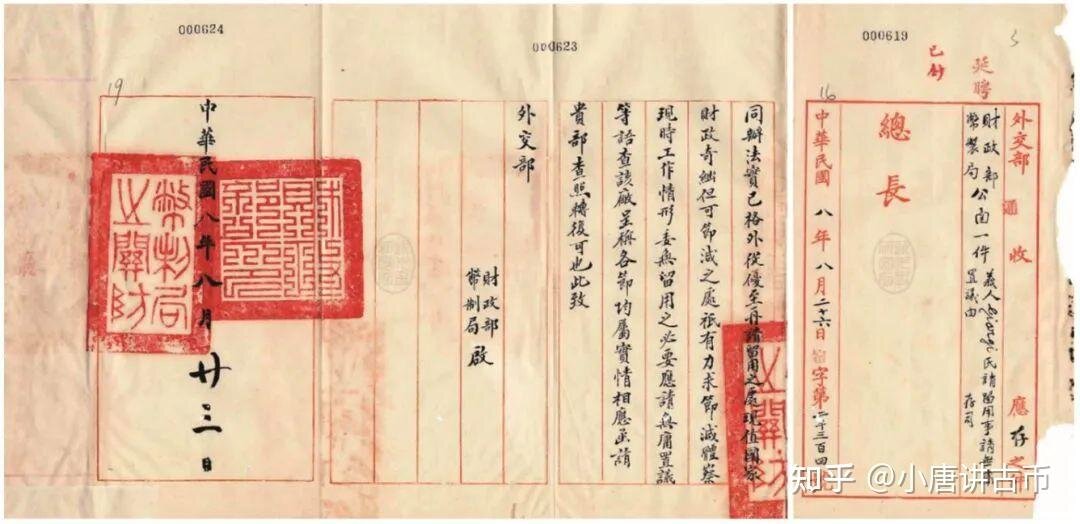 000619
已鈔
延聘
外交部 通 收 應存之
財政部
幣製局
公函一件
義人Giorgi氏請留用事請無庸
置議由
存司
總長
16
中華民國八年八月二十六日 字第二千三百四
000623
同辦法實已格外從優至再請留用之處現值國家
財政奇絀但可節減之處祇有力求節減體察
現時工作情形委無留用之必要應請無庸置議
等語查該廠呈稱各節均屬實情相應函請
貴部查照轉復可也此致
外交部
財政部
幣制局 啟
000624
19
中華民國八年八月廿三日
幣制局
之關防
之關防
知乎 @小唐讲古币